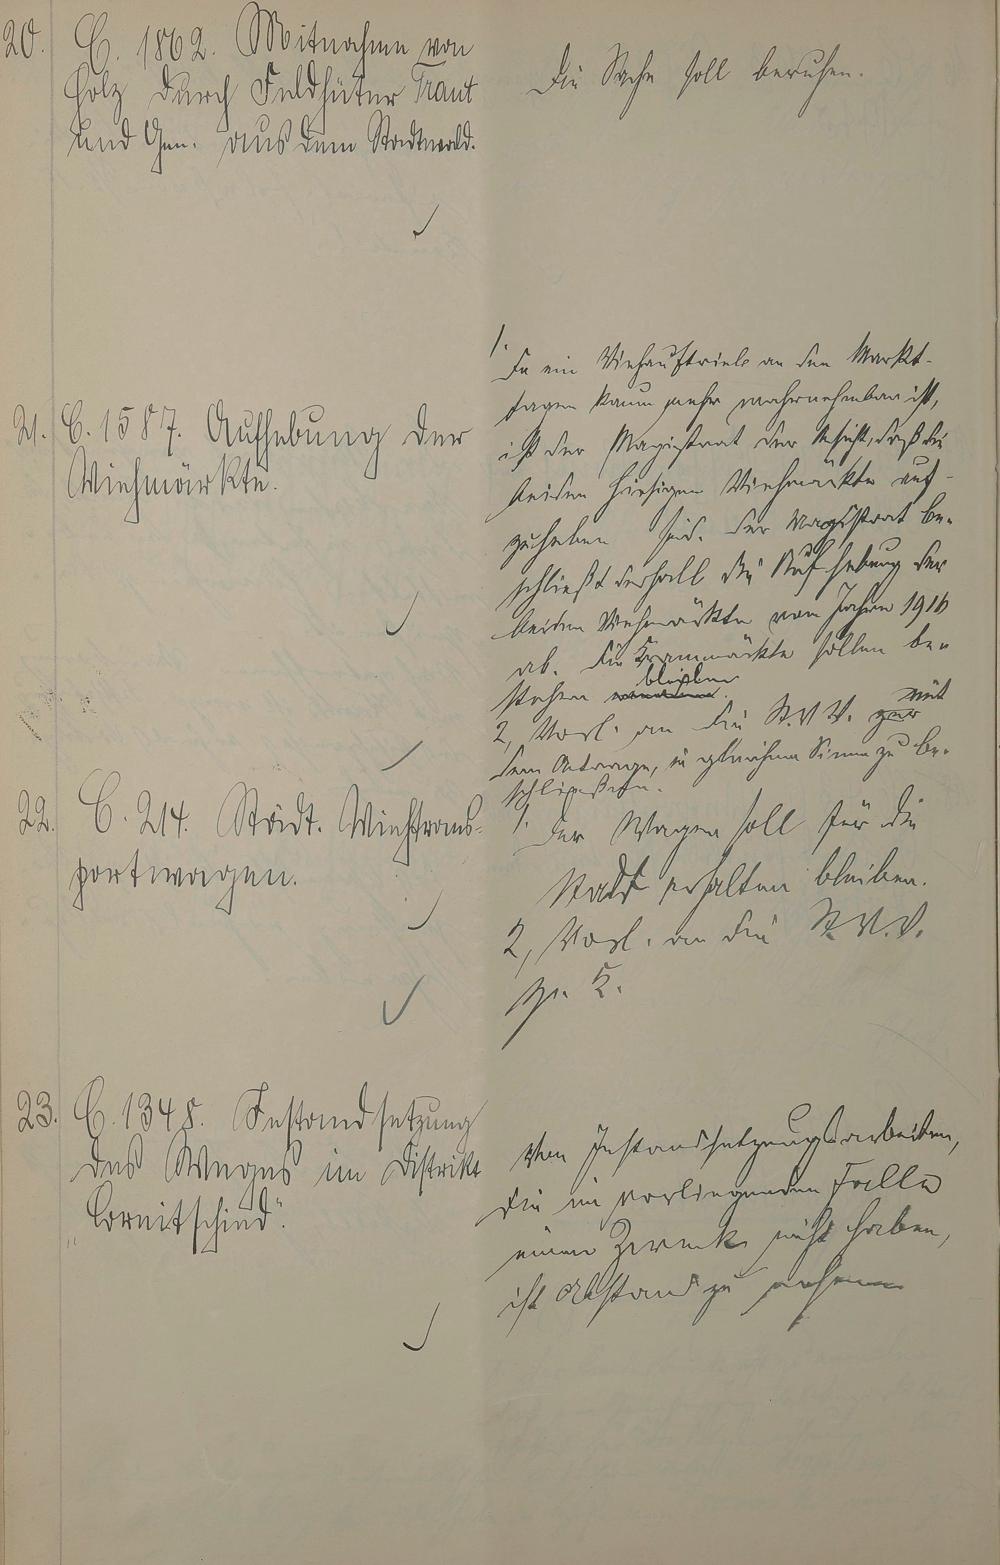 20. C. 1862. Mitnahme von
Holz durch Feldhüter Traut
und Gen. aus dem Stadtwald.
Die Sache soll beruhen.
21. C. 1587. Aufhebung der
Viehmärkte.
1.
Da ein Viehauftrieb an den Markt-
tagen kaum mehr wahrnehmbar ist,
ist der Magistrat der Ansicht, daß die
beiden hiesigen Viehmärkte auf-
zuheben sind. Der Magistrat be-
schließt deshalb die Aufhebung der
beiden Viehmärkte vom Jahre 1916
ab. Die Krammärkte sollen be-
stehen bleiben.
2, Vorl. an die St.V.V. mit
dem Antrage, in gleichem Sinne zu be-
schließen.
22. C. 214. Städt. Viehtrans-
portwagen.
1. Der Wagen soll für die
Stadt erhalten bleiben.
2, Vorl. an die St.V.V.
23. C. 1348. Instandsetzung
des Weges im Distrikt
„Cornitschied“.
Von Instandsetzungsarbeiten,
die im vorliegenden Falle
einen Zweck nicht haben,
ist Abstand zu nehmen